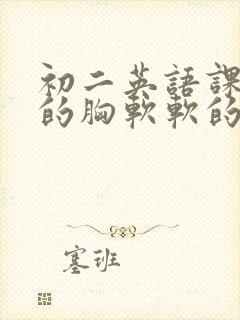 初二英語課
的胸軟軟的
塞班